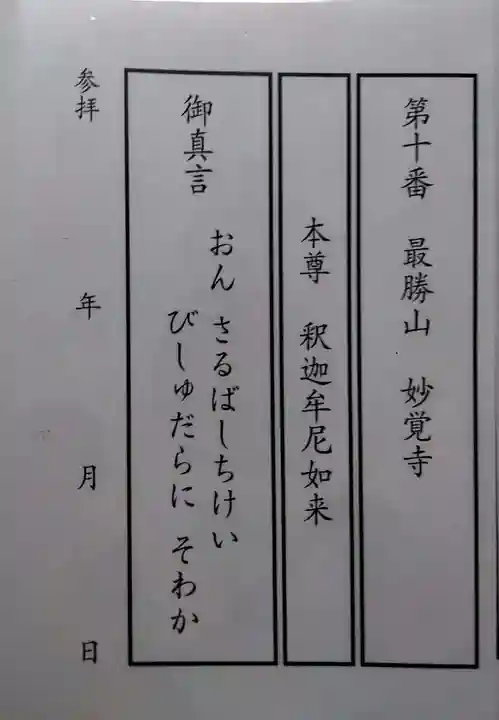 第十番　最勝山　妙覚寺
本尊　釈迦牟尼如来
御真言
おん さるばしちけい
びしゅだらに そわか
参拝　年　月　日